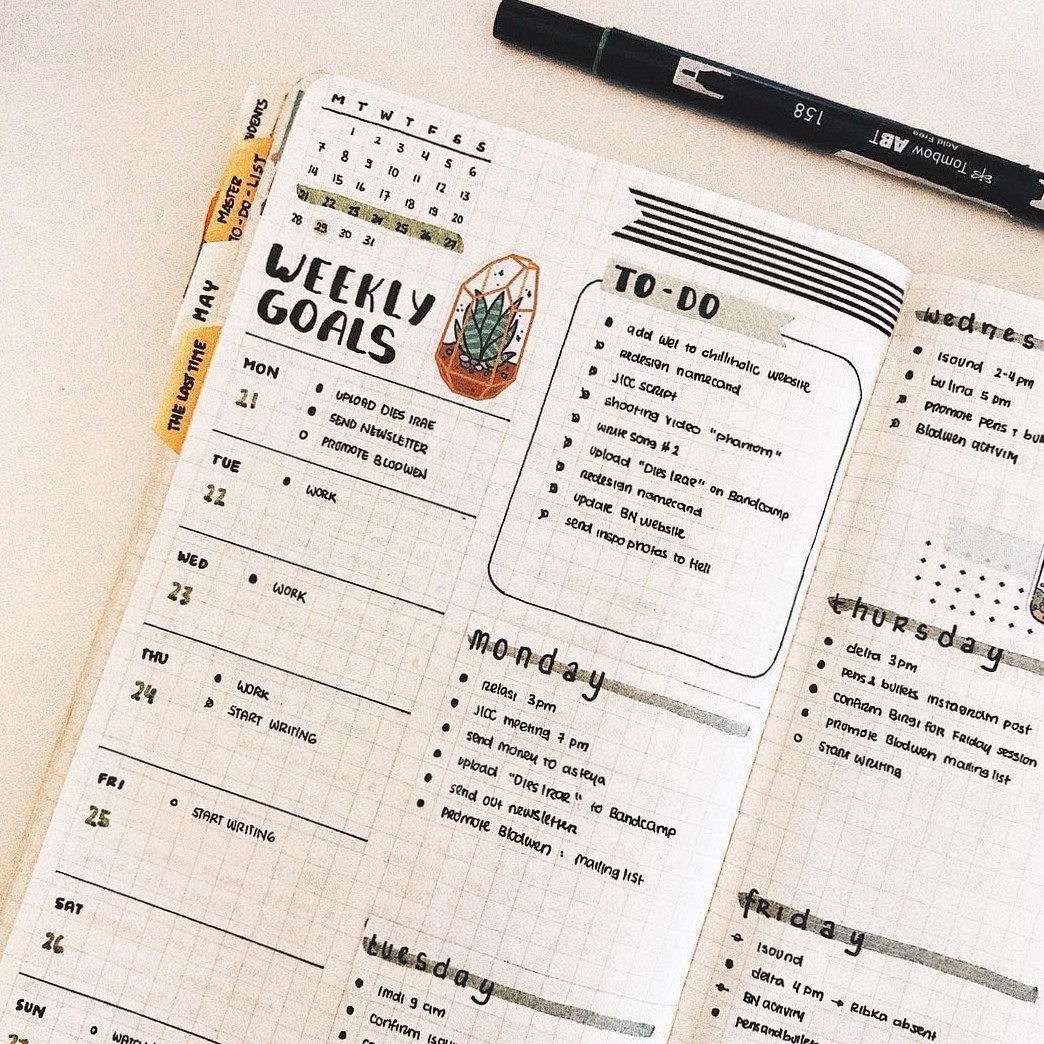 158
Tombow ABT
Acid Free
MASTER
TO-DO-LIST
MAY
THE LAST TIME
M T W T F S S
1 2 3 4 5 6
7 8 9 10 11 12 13
14 15 16 17 18 19 20
21 22 23 24 25 26 27
28 29 30 31
WEEKLY
GOALS
MON
21
UPLOAD DIES IRAE
SEND NEWSLETTER
PROMOTE BLODWEN
TUE
22
WORK
WED
23
WORK
THU
24
WORK
START WRITING
FRI
25
START WRITING
SAT
26
SUN
TO-DO
add wei to chillinalic website
redesign namecard
JICC script
shooting video "phantom"
write song #2
upload "Dies Irae" on Bandcamp
redesign namecard
update BN website
send inspo photos to Hell
monday
relasi 3pm
JICC meeting 7 pm
send money to asteya
upload "Dies Irae" to Bandcamp
send out newsletter
promote Blodwen : mailing list
tuesday
1mdl 9 am
confirm
wednes
1sound 2-4 pm
bu lina 5 pm
promote pens
Blodwen activity
thursday
delta 3pm
pens & bullets instagram post
confirm Birgi for Friday session
promote Blodwen mailing list
start writing
friday
1sound
delta 4 pm → Ribka absent
BN activity
pensandbullets